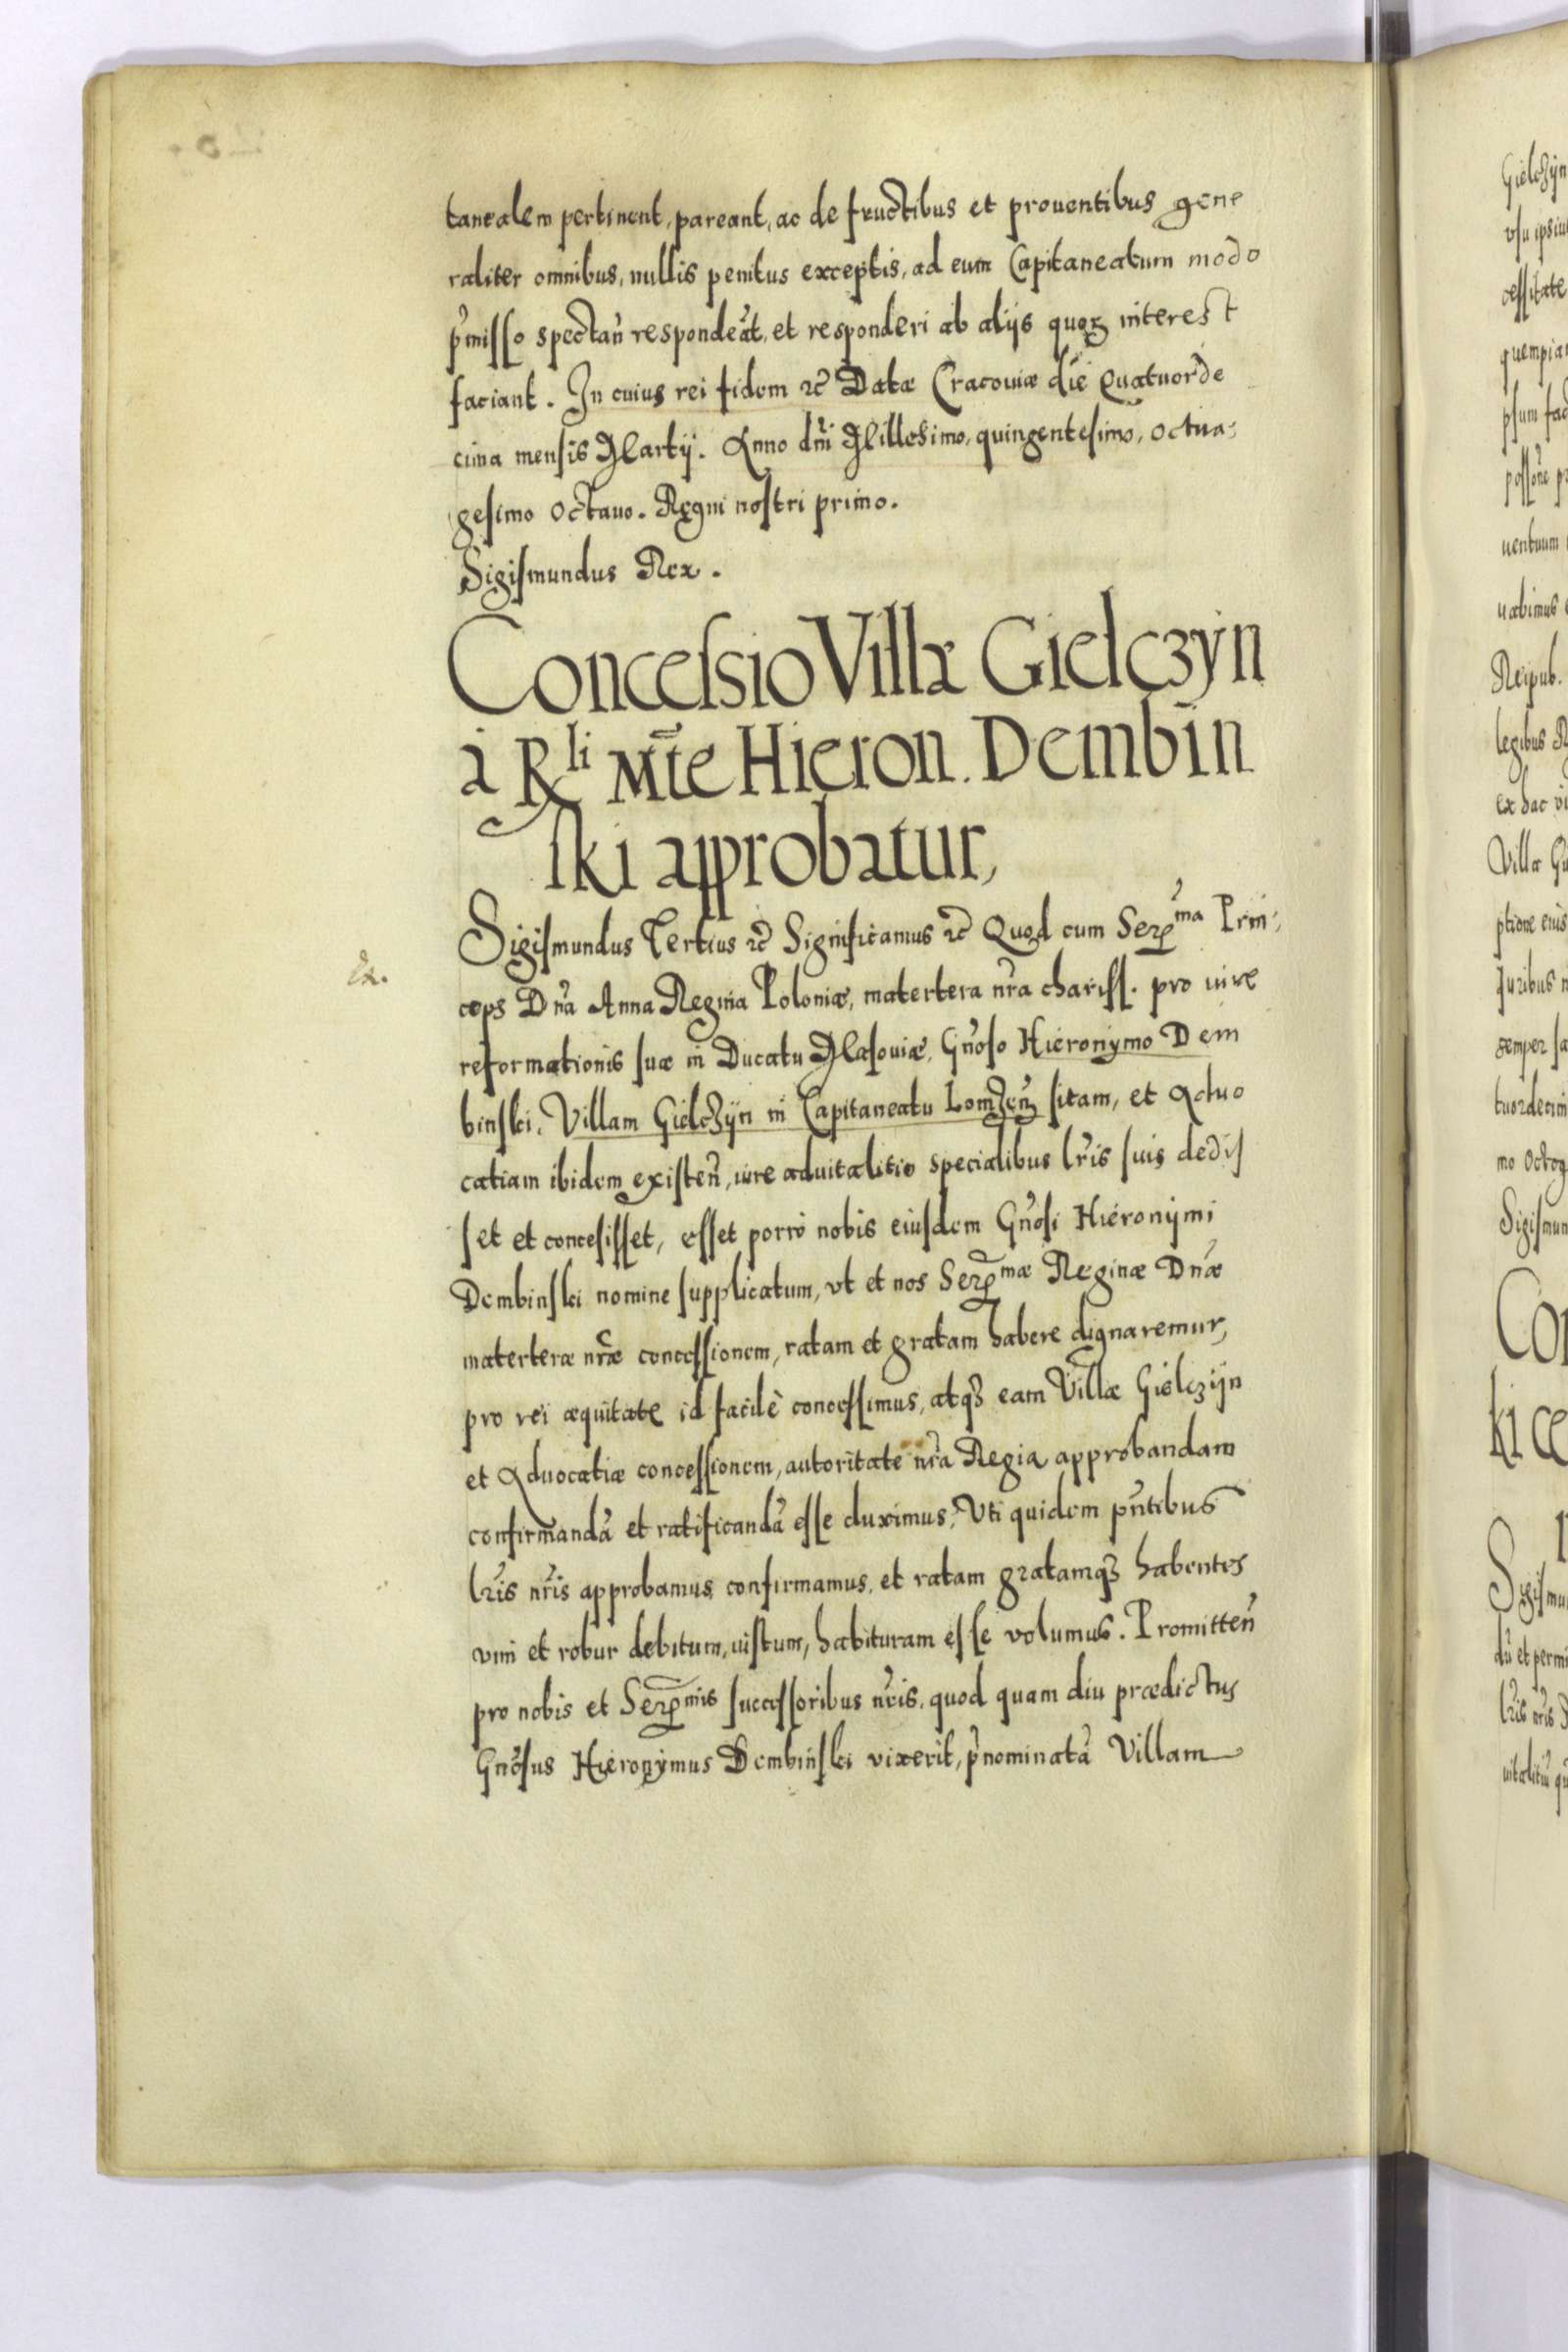 tanealem pertinent, pareant, ac de fructibus et prouentibus gene
raliter omnibus, nullis penitus exceptis, ad eum Capitaneatum modo
p̃misso spectan̄ respondeãt, et responderi ab alijs quoꝝ interest
faciant. In cuius rei fidem ⁊c̄ Datæ Cracouiæ die Quatuorde
cima mensis Martij. Anno dn̄i Millesimo, quingentesimo, octua:
gesimo octauo. Regni nostri primo.
Sigismundus Rex.
Concessio Villæ Gielczÿn
à Rˡⁱ Mt̄e Hieron. Dembin
ski approbatur,
Sigismundus Tertius ⁊c̄ Significamus ⁊c̄ Quod cum Serꝫᵐᵃ Prin:
ceps Dn̄a Anna Regina Poloniæ, matertera nr̄a chariss. pro iure
reformationis suæ in Ducatu Masouiæ, Gn̄oso Hieronÿmo Dem
binski, Villam Gielczÿn in Capitaneatu Lomzen̄ sitam, et Aduo
catiam ibidem existen̄, iure aduitalitio specialibus lr̄is suis dedis
set et concesisset, esset porrò nobis eiusdem Gn̄osi Hieronÿmi
Dembinski nomine supplicatum, vt et nos Serꝫᵐᵃᵉ Reginæ Dn̄æ
materteræ nr̄æ concessionem, ratam et gratam habere dignaremur,
pro rei æquitate id facilè concessimus, atqꝫ eam Villæ Gielczÿn
et Aduocatiæ concessionem, autoritate nr̄a Regia approbandam
confirmandã et ratificandã esse duximus, Vti quidem pn̄tibus
lr̄is nr̄is approbamus confirmamus, et ratam gratamqꝫ habentes
vim et robur debitum, iustum, habituram esse volumus. Promitten̄
pro nobis et Serꝫᵐⁱˢ successoribus nr̄is, quod quam diu prædictus
Gn̄osus Hieronÿmus Dembinski vixerit, p̃nominatã Villam